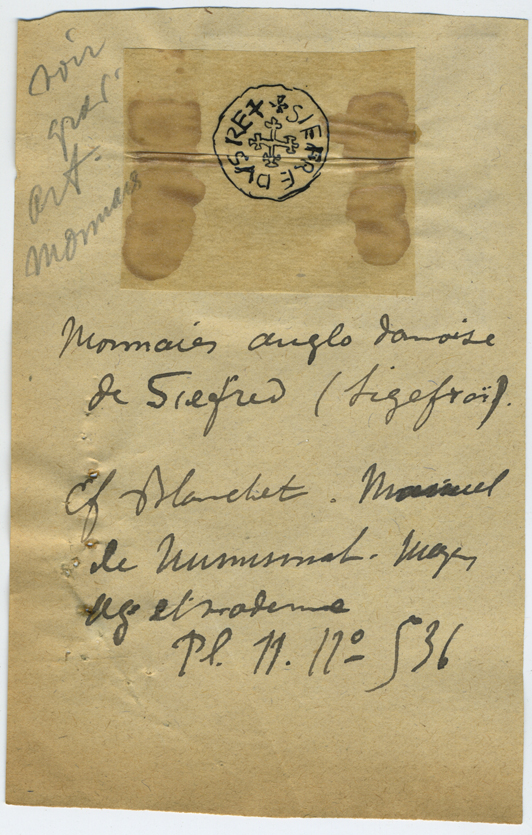 voir
grav.
art.
Monnaies
SIEFREDVS REX
Monnaies anglo danoise
de Siefred (Sigefroi).
Cf Blanchet. Manuel
de Numismat. Moyen
age et moderne
Pl. 11. No 536